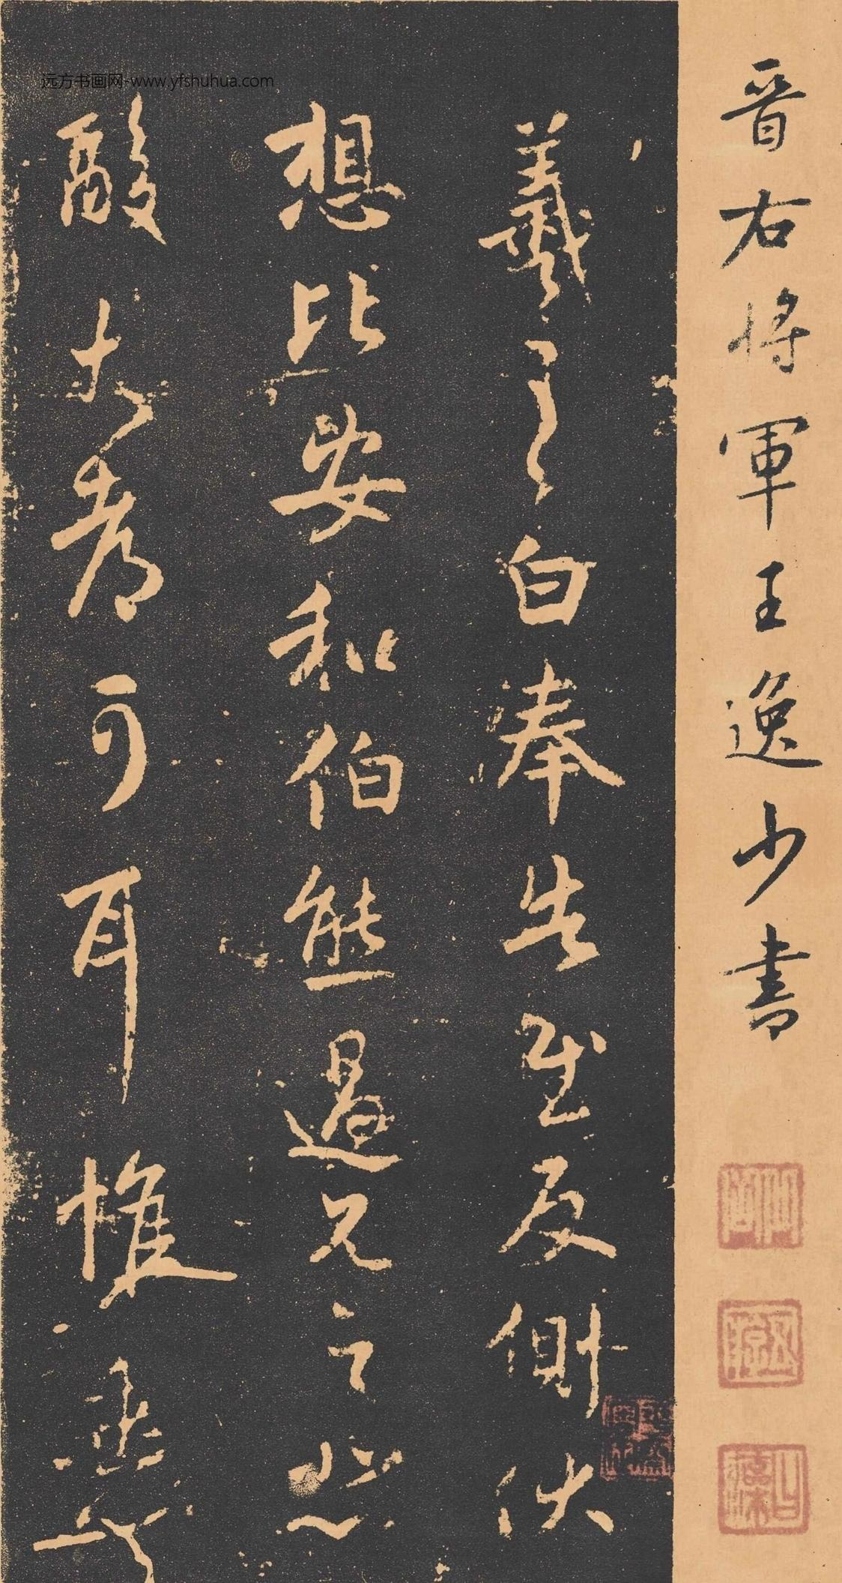 晋右将軍王逸少書
羲之白奉告慰反側伏
想比安和伯熊過兄之悲
酸大都可耳惟
远方书画网-www.yfshuhua.com